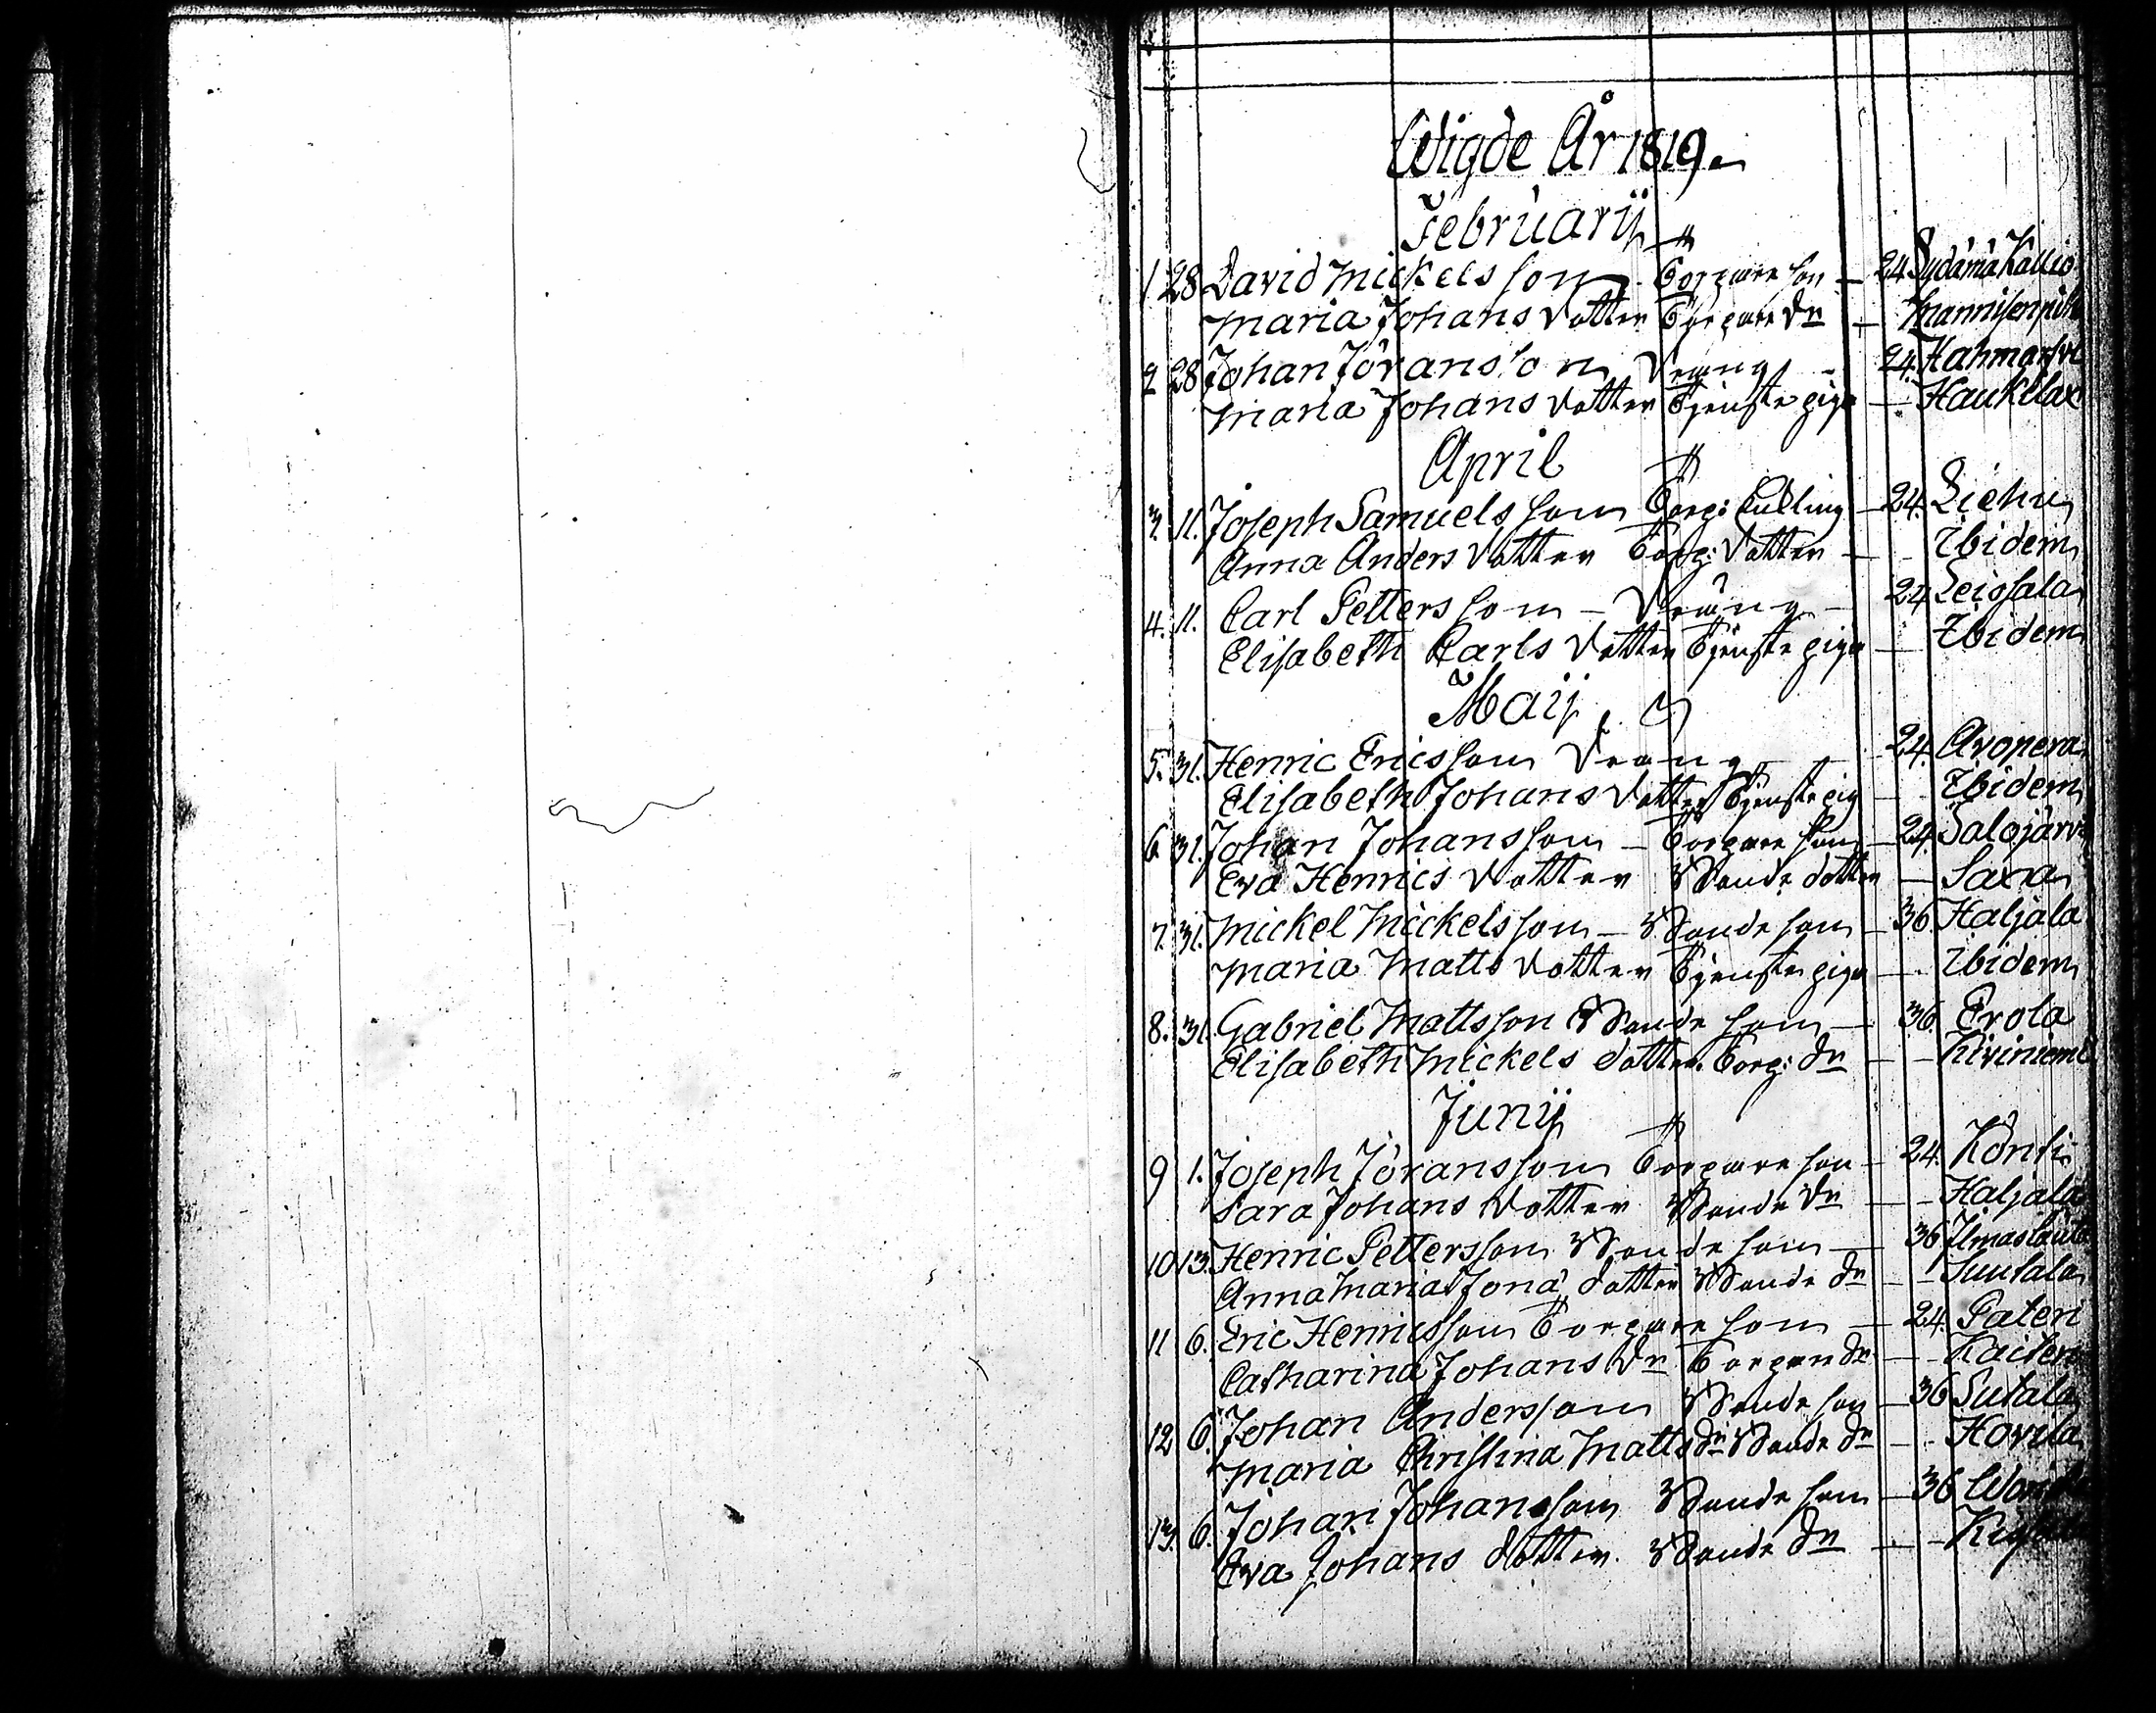 Wigde År 1819.
Februarij
1 28 David Mickelsson Torpare son — 24 Sydämä Kallio
Maria Johans dotter Torpare dr —
2 28 Johan Jöransson Dräng - 24. 
Maria Johans dotter Tjenste piga — Haukilax
April
3. 11. Joseph Samuels son Torp: Enkling — 24. Liehu
Anna Anders dotter Torp: dotter — Ibidem
4. 11. Carl Petters son — Dräng — 24 
Elisabeth Carls dotter Tjenste piga — Ibidem
Maij
5. 31. Henric Ericsson Dräng — 24. Avopera
Elisabeth Johans dotter Tjenste pig — Ibidem
6 31. Johan Johansson — Torpare son — 24. Salojärvi
Eva Henrics dotter Bonde dotter — Saxa
7. 31. Mickel Mickelsson — Bonde son — 36 Haljala
Maria Matts dotter Tjenste piga — Ibidem
8. 31. Gabriel Mattsson Bonde son — 36. Erola
Elisabeth Mickels dotter Torp: dr — Kiviniemi
Junij
9 1. Joseph Jöransson Torpare son — 24. Kontu
Sara Johans dotter Bonde dr — Haljala
10 13. Henric Pettersson Bonde son — 36 Ilmaslauta
Anna Maria Jona dotter Bonde dr — Suutala
11 6. Eric Henricsson Torpare son — 24. Pateri
Catharina Johans dr Torpare dr —
12 6. Johan Andersson Bonde son — 36 Sutala
Maria Christina Matts dr Bonde dr — Hovila
13. 6. Johan Johansson Bonde son — 36
Eva Johans dotter Bonde dr —